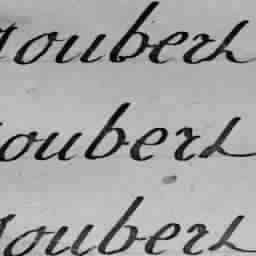 joubert
oubert
joubert